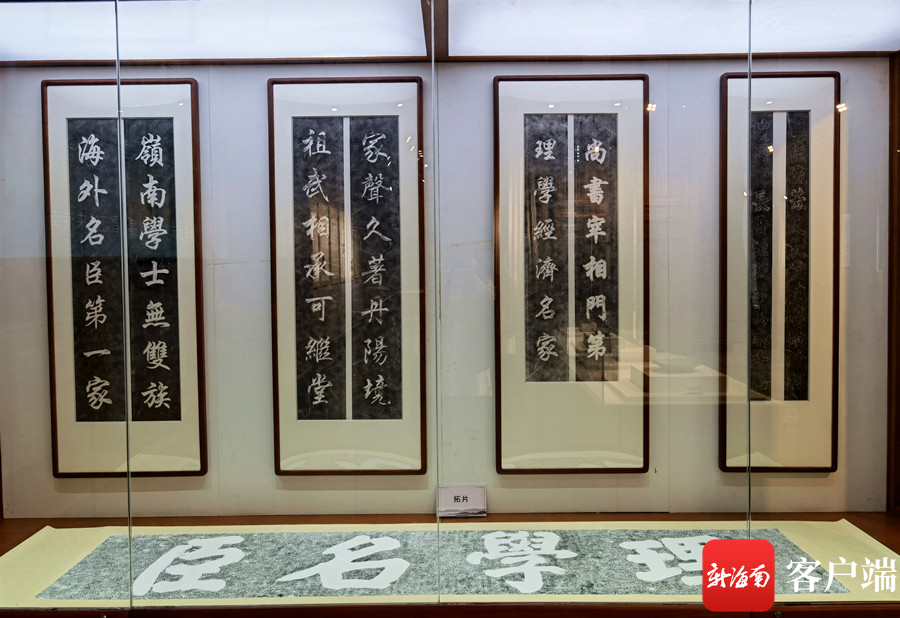 嶺南學士無雙族
海外名臣第一家
家聲久著丹陽境
祖武相承可繼堂
尚書宰相門第
理學經濟名家
拓片
理學名臣
新海南 客户端